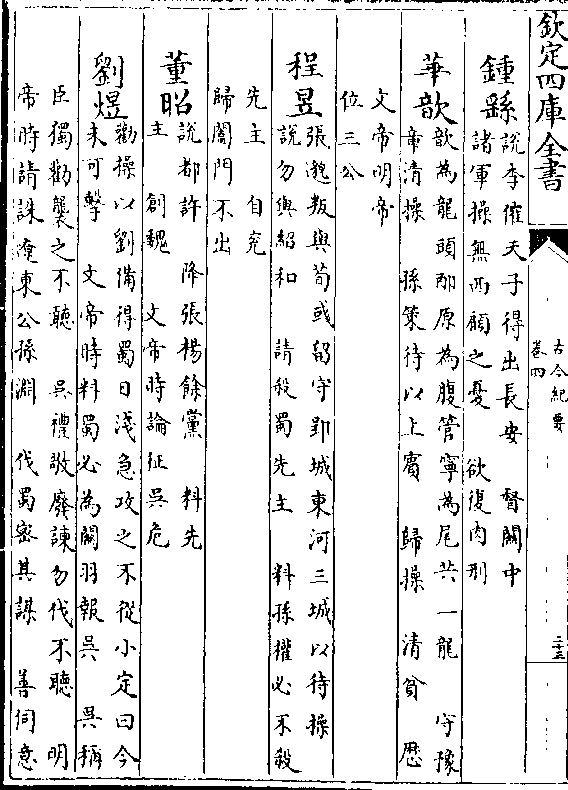 欽定四庫全書
古今紀要
卷四
二十三
鍾繇
說李傕天子得出長安　督關中
諸軍操無西顧之憂　欲復肉刑
華歆
歆為龍頭邴原為腹管寧為尾共一龍　守豫
章清操　孫策待以上賓　歸操　清貧　歴
文帝明帝
位三公
程昱
張邈叛與荀彧留守鄄城東河三城以待操
說勿與紹和　請殺蜀先主　料孫權必不殺
先主　自兖
歸闔門不出
董昭
說都許　降張楊餘黨　料先
主　創魏　文帝時論征吳危
劉煜
勸操以劉備得蜀日淺急攻之不從小定曰今
未可擊　文帝時料蜀必為關羽報吳　吳稱
臣獨勸襲之不聽　吳禮敬廢諫勿伐不聽　明
帝時請誅遼東公孫淵　伐蜀密其謀　善伺意